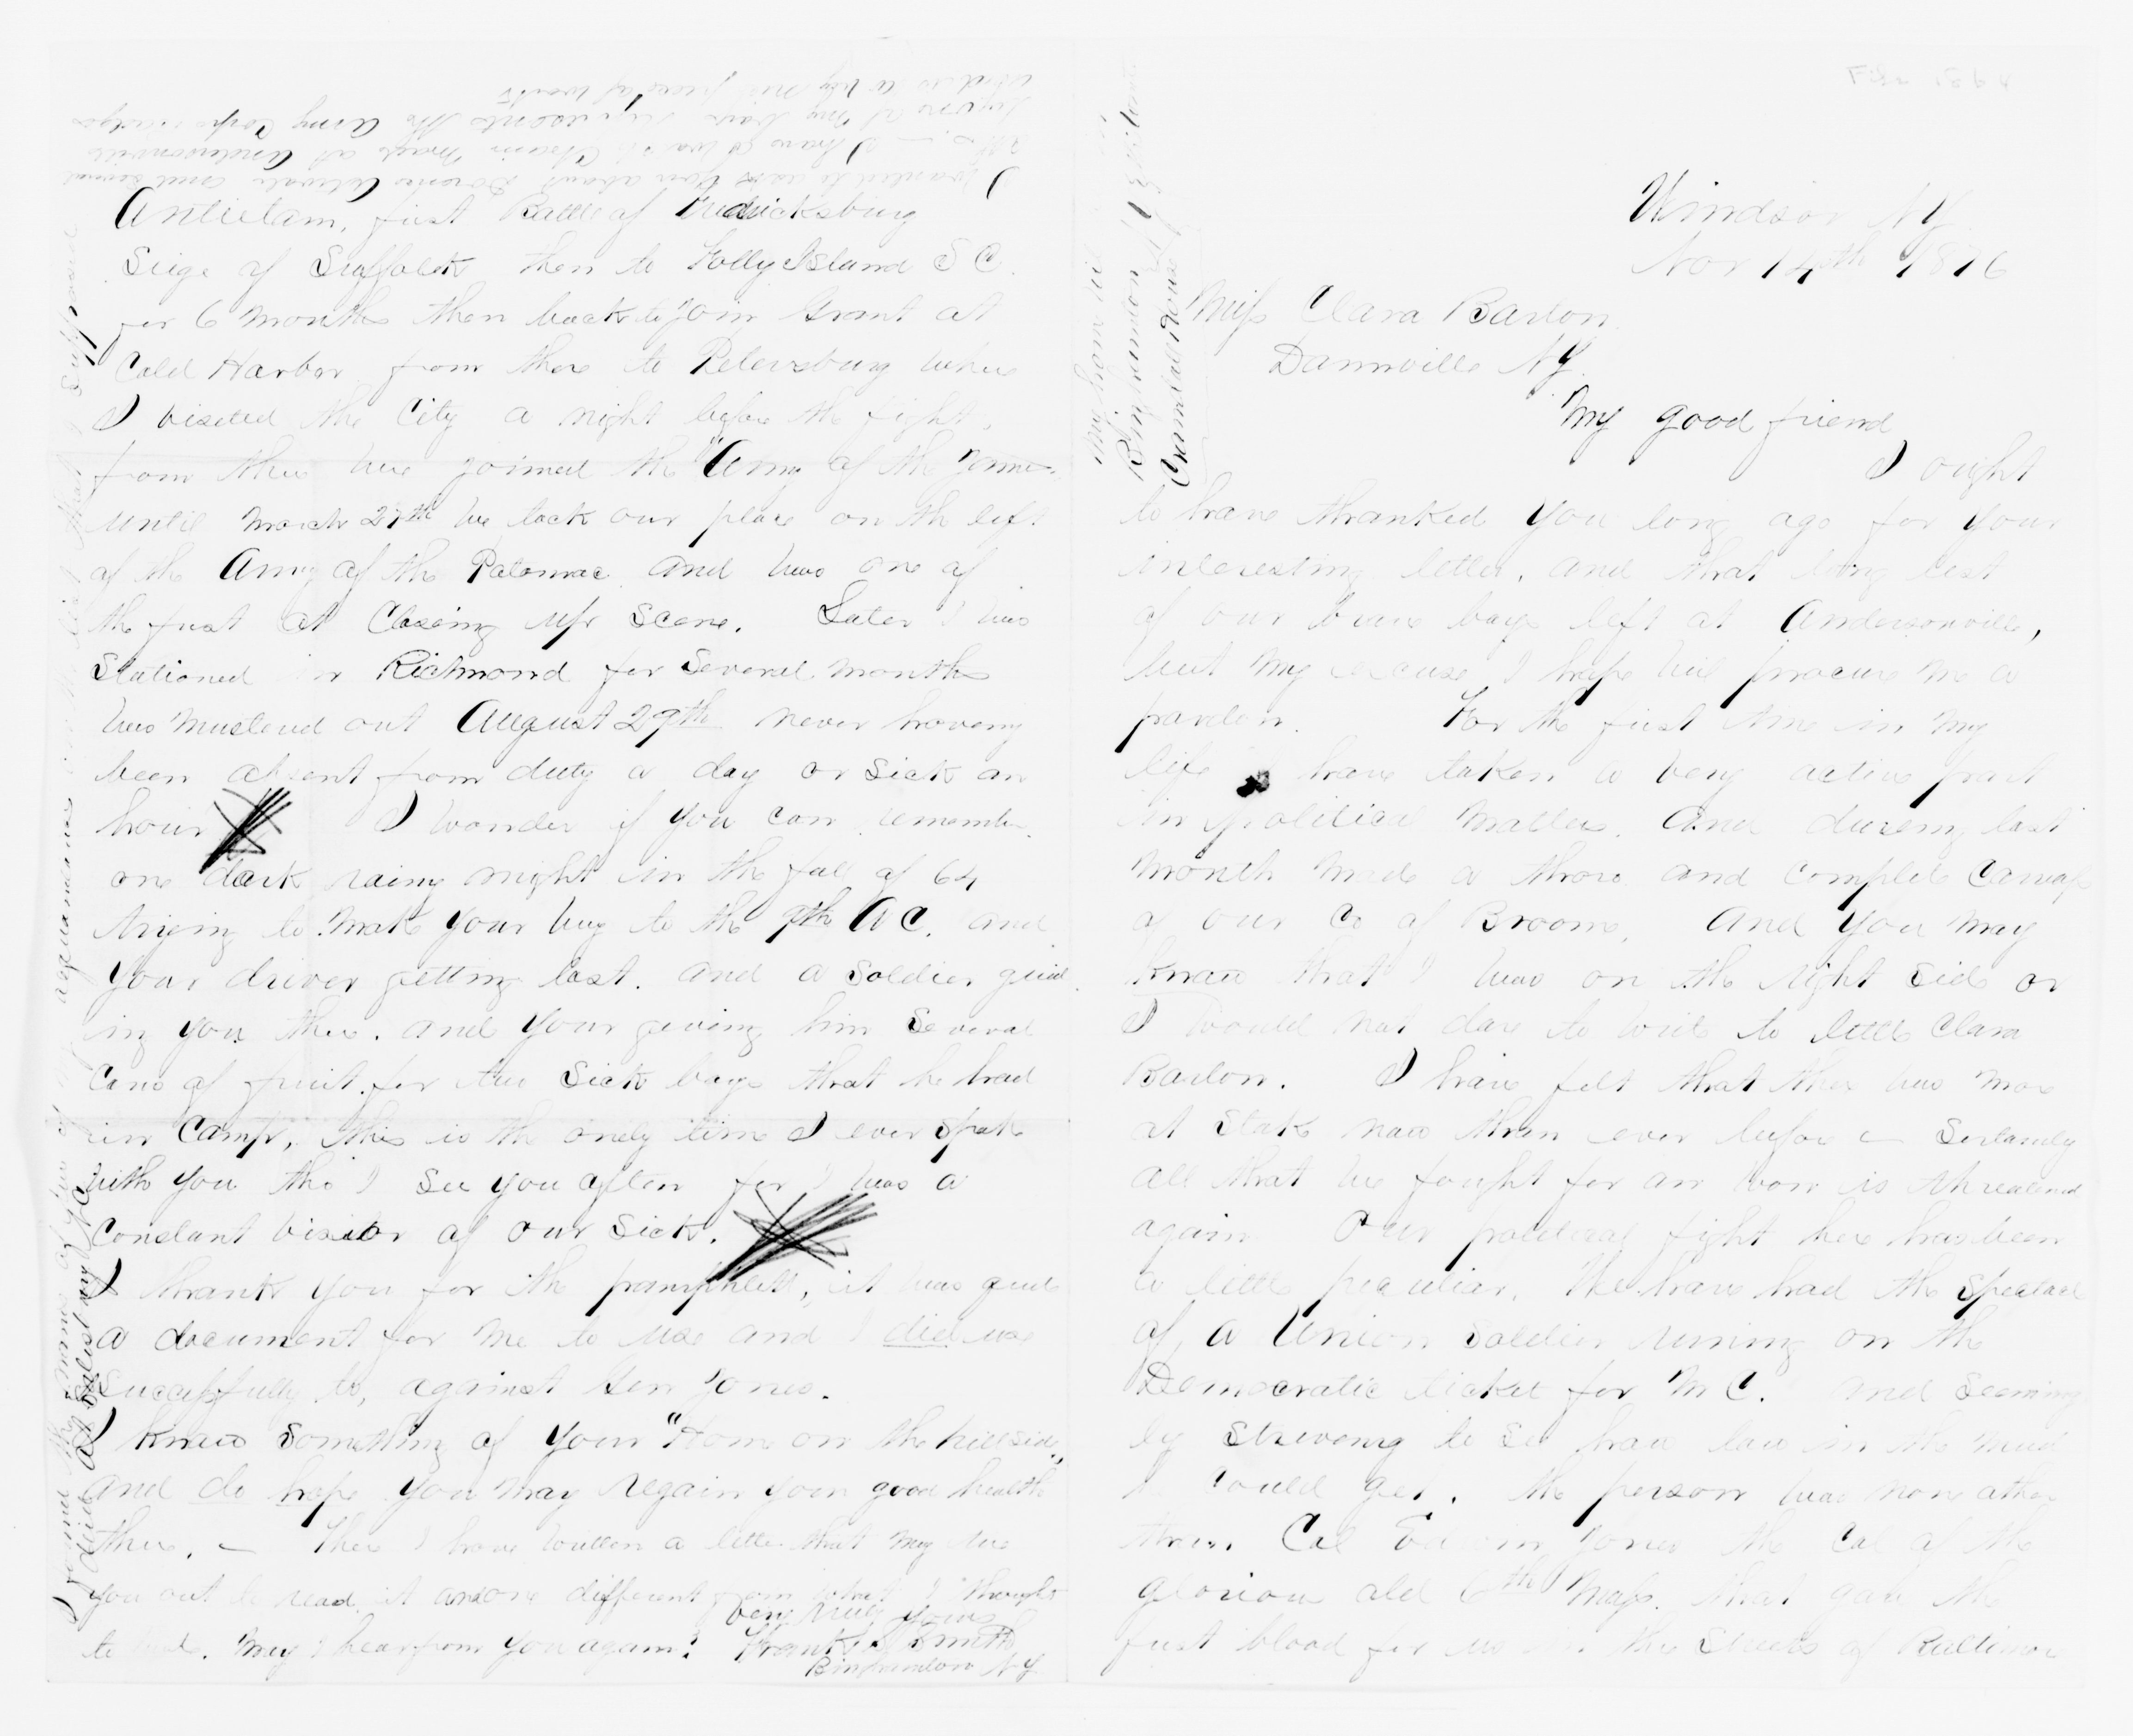 Windsor NY
Nov 14th 1876
Miss Clara Barton
Dannville NY.
My good friend
I ought
to have thanked you long ago for your
interesting letter, and that long list
of our brave boys left at Andersonville,
but my excuse I hope will procure me a
pardon. For the first time in my
life I have taken a very active part
in political matters. And during last
month made a thoro and complete Canvass
of our Co of Broome. And you may
know that I was on the right side or
I would not dare to write to little Clara
Barton. I have felt that there was more
at Stake now than ever before — Sertainly
all that we fought for an won is threatened
again Our political fight here has been
a little peculiar. We have had the Spectacle
of a Union Soldier running on the
Democratic ticket for M C. And Seeming
ly Striveing to See how low in the mud
he could get. the person was none other
than Col Edwin Jones the Col of the
glorious old 6th Mass. that gave the
first blood for us in the Streets of Baltimore
my home is in
Binghamton
Crandal House
Antietam, first Battle of Fredricksburg
Seige of Suffolck then to Folly Island S C.
for 6 months then back to join Grant at
Cold Harbor from there to Petersburg where
I visited the City a night before the fight.
from there we joined the "Army of the James
until March 27th we took our place on the left
of the Army of the Potomac and was one of
the first at Closing up Scene. Later I was
Stationed in Richmond for Several months
was mustered out August 29th never haveing
been absent from duty a day or Sick an
hour I wonder if you can remember
one dark rainy night in the fall of 64
trying to make your way to the 9th A C. and
your driver getting lost. and a Soldier guid
ing you there. and your giveing him Several
Cans of fruit for two Sick boys that he had
in Camp, this is the onely time I ever Spoke
with you tho I See you often for I was a
Constant visitor of our Sick.
I thank you for the pamphlett, it was quite
a document for me to use and I did use
Successfully to, against Gen Jones.
I know Something of your "Home on the hillside",
and do hope you may regain your good health
there. — There I have written a letter that may tire
you out to read it and one different from what I thought
to write. May I hear from you again? Very truly yours
Frank Smith
Binghamton NY
I found the names of five of my acquaintances on the list that I Supposed
died at Salisbury NC
I wanted to ask you about Dorence Atwater and several
others — I have a watch Chain made at Andersonville